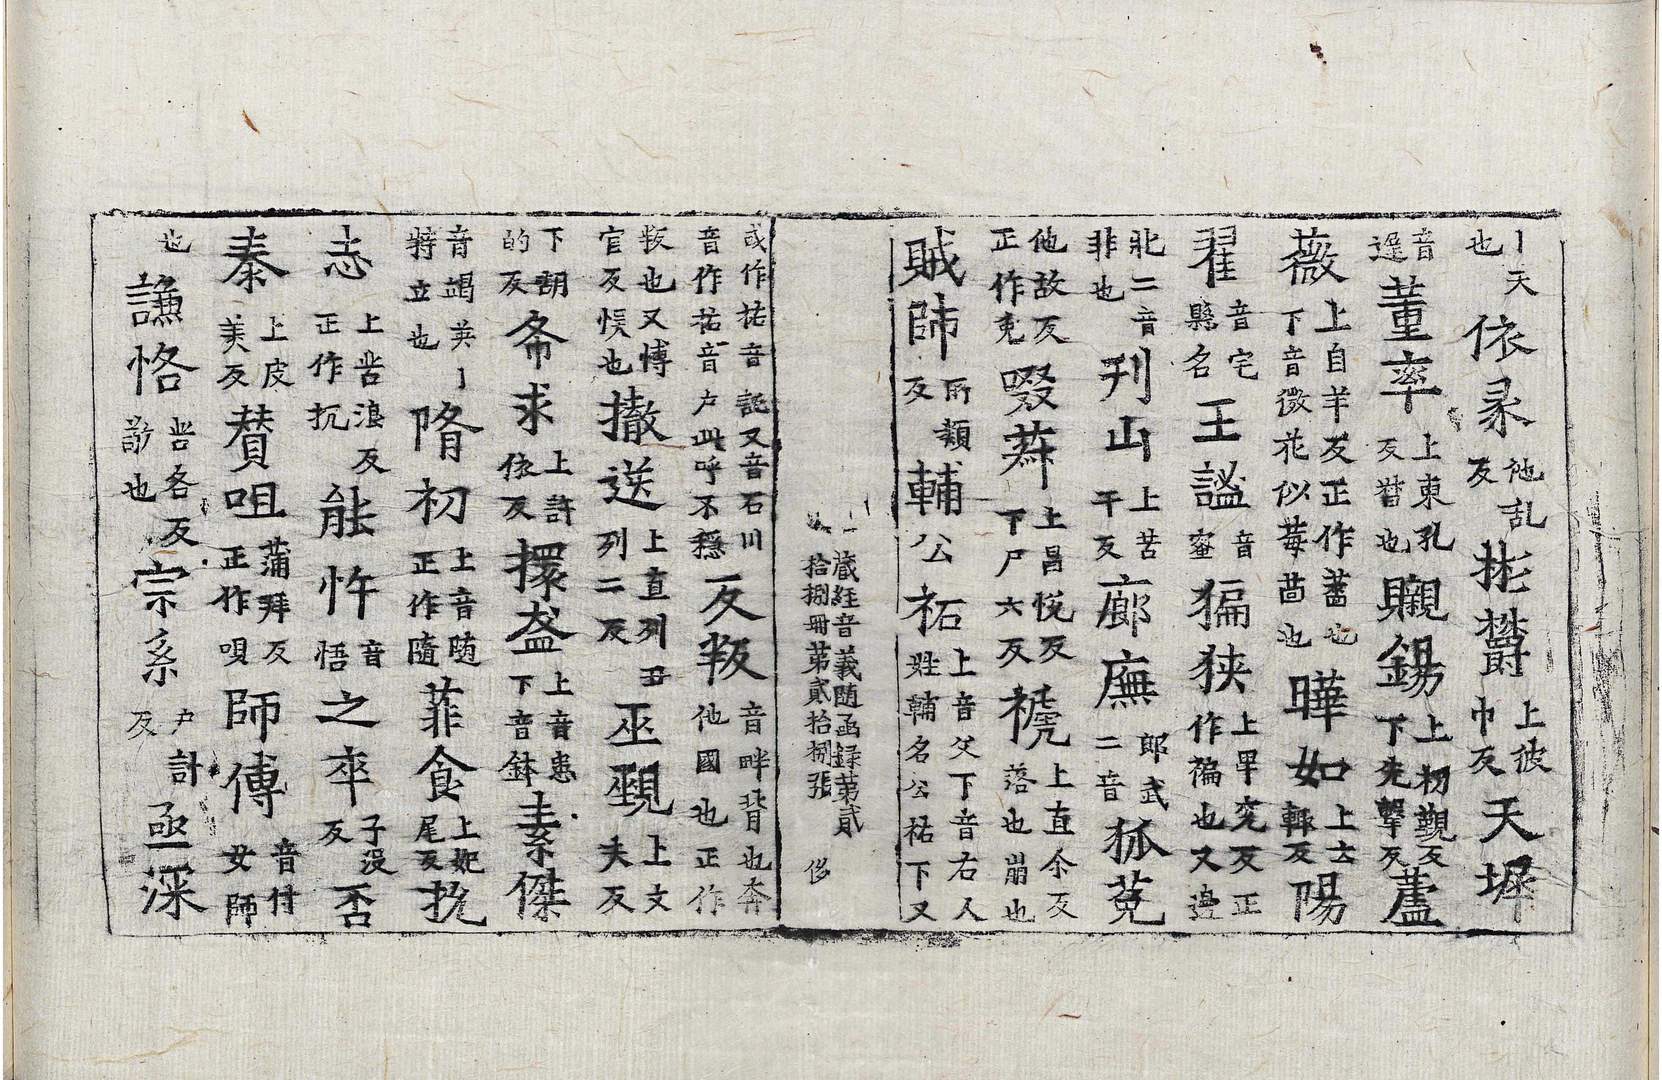 丨天也依彔他乱反彬欝上彼巾反天墀
音遲董率上東孔反督也䞋錫上初覲反下先擊反蘆
薇上自羊反正作蔷也下音微花似莓苗也曄如上云輒反陽
翟音宅縣名王謐音蜜猵狭上畢兖反正作褊也又邊
北二音非也刋山上苦干反廊廡郎武二音狐菟
他故反正作兎啜𦵔上昌悦反下尸六反褫上直尒反落也崩也
賊帥所類反輔公祏上音父下音右人姓輔名公祏下又
藏経音義随函録第貳
拾捌冊第貳拾捌張 侈
或作祐音託又音石川音作祐音户此呼不穩反叛音畔背也奔他國也正作
叛也又愽官反悮也撤送上直列丑列二反巫覡上文夫反
下胡的反希求上許依反擐盔上音患下音鉢素傑
音竭英丨特立也隋初上音随正作隨菲食上妃尾反抗
志上苦浪反正作抗能忤音悟之卒子没反否
泰上皮美反賛咀蒲拜反正作唄師傅音付女師
也謙恪苦各反謹也宗系户計反亟深